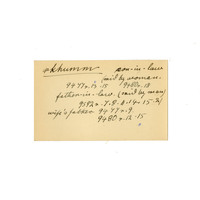 son-in-law
(said by woman.
9477a.13.15 9480a.13
father-in-law. (said by man)
9582a.7.9.8.14.15.2)
wife's father 9477a.9.
9480a.12.15